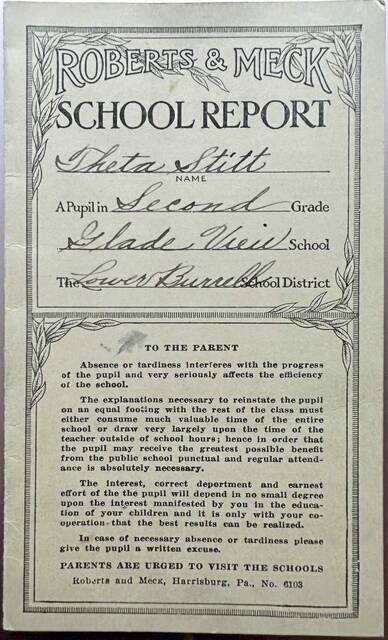 ROBERTS & MECK
SCHOOL REPORT
Theta Stitt
NAME
A Pupil in Second Grade
Glade View School
The Lower Burrell School District
TO THE PARENT
Absence or tardiness interferes with the progress
of the pupil and very seriously affects the efficiency
of the school.
The explanations necessary to reinstate the pupil
on an equal footing with the rest of the class must
either consume much valuable time of the entire
school or draw very largely upon the time of the
teacher outside of school hours; hence in order that
the pupil may receive the greatest possible benefit
from the public school punctual and regular attend-
ance is absolutely necessary.
The interest, correct deportment and earnest
effort of the the pupil will depend in no small degree
upon the interest manifested by you in the educa-
tion of your children and it is only with your co-
operation that the best results can be realized.
In case of necessary absence or tardiness please
give the pupil a written excuse.
PARENTS ARE URGED TO VISIT THE SCHOOLS
Roberts and Meck, Harrisburg, Pa., No. 6103